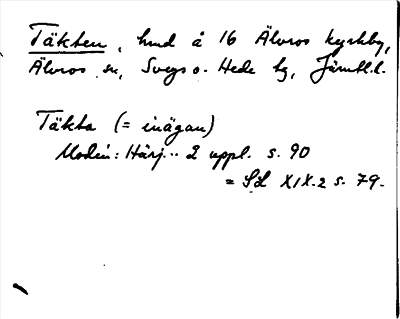 Täkten, hmd å 16 Älvros kyrkby,
Älvros sn, Svegs o. Hede tg, Jämtl.l.
Täkta (= inägan)
Modin: Härj... 2 uppl. s. 90
= SL XIX.2 s. 79.